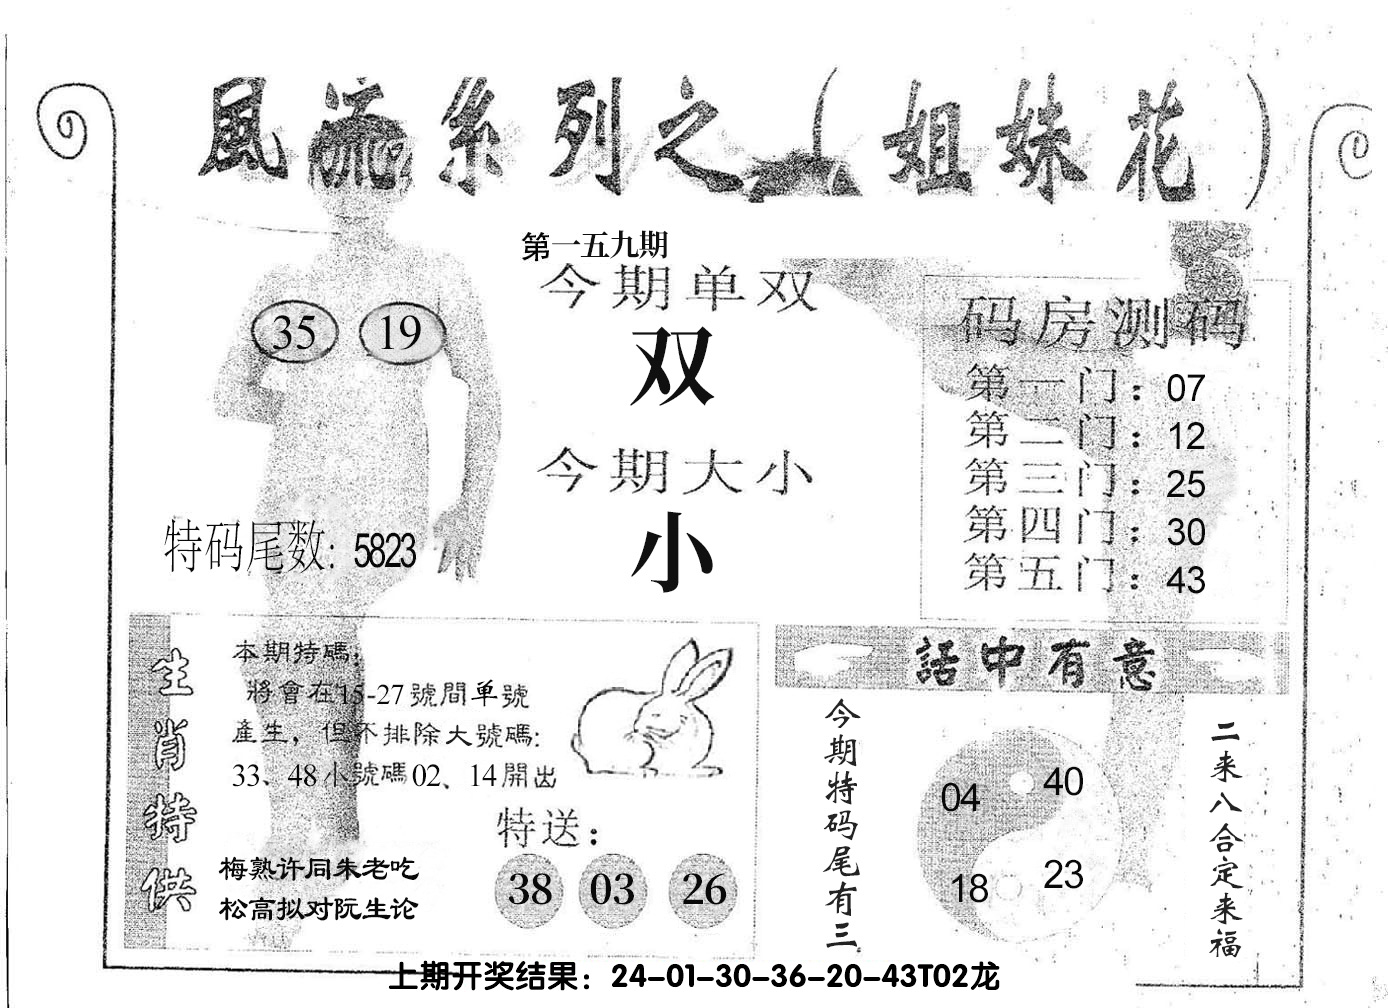 風流系列之（姐妹花）
第一五九期
今期单双
双
今期大小
小
35 19
特码尾数: 5823
码房测码
第一门：07
第二门：12
第三门：25
第四门：30
第五门：43
生肖特供
本期特碼；
將會在15-27號間单號
產生，但不排除大號碼:
33、48小號碼02、14開出
特送：
38 03 26
梅熟许同朱老吃
松高拟对阮生论
話中有意
今期特码尾有三
04 40
18 23
二来八合定来福
上期开奖结果：24-01-30-36-20-43T02龙